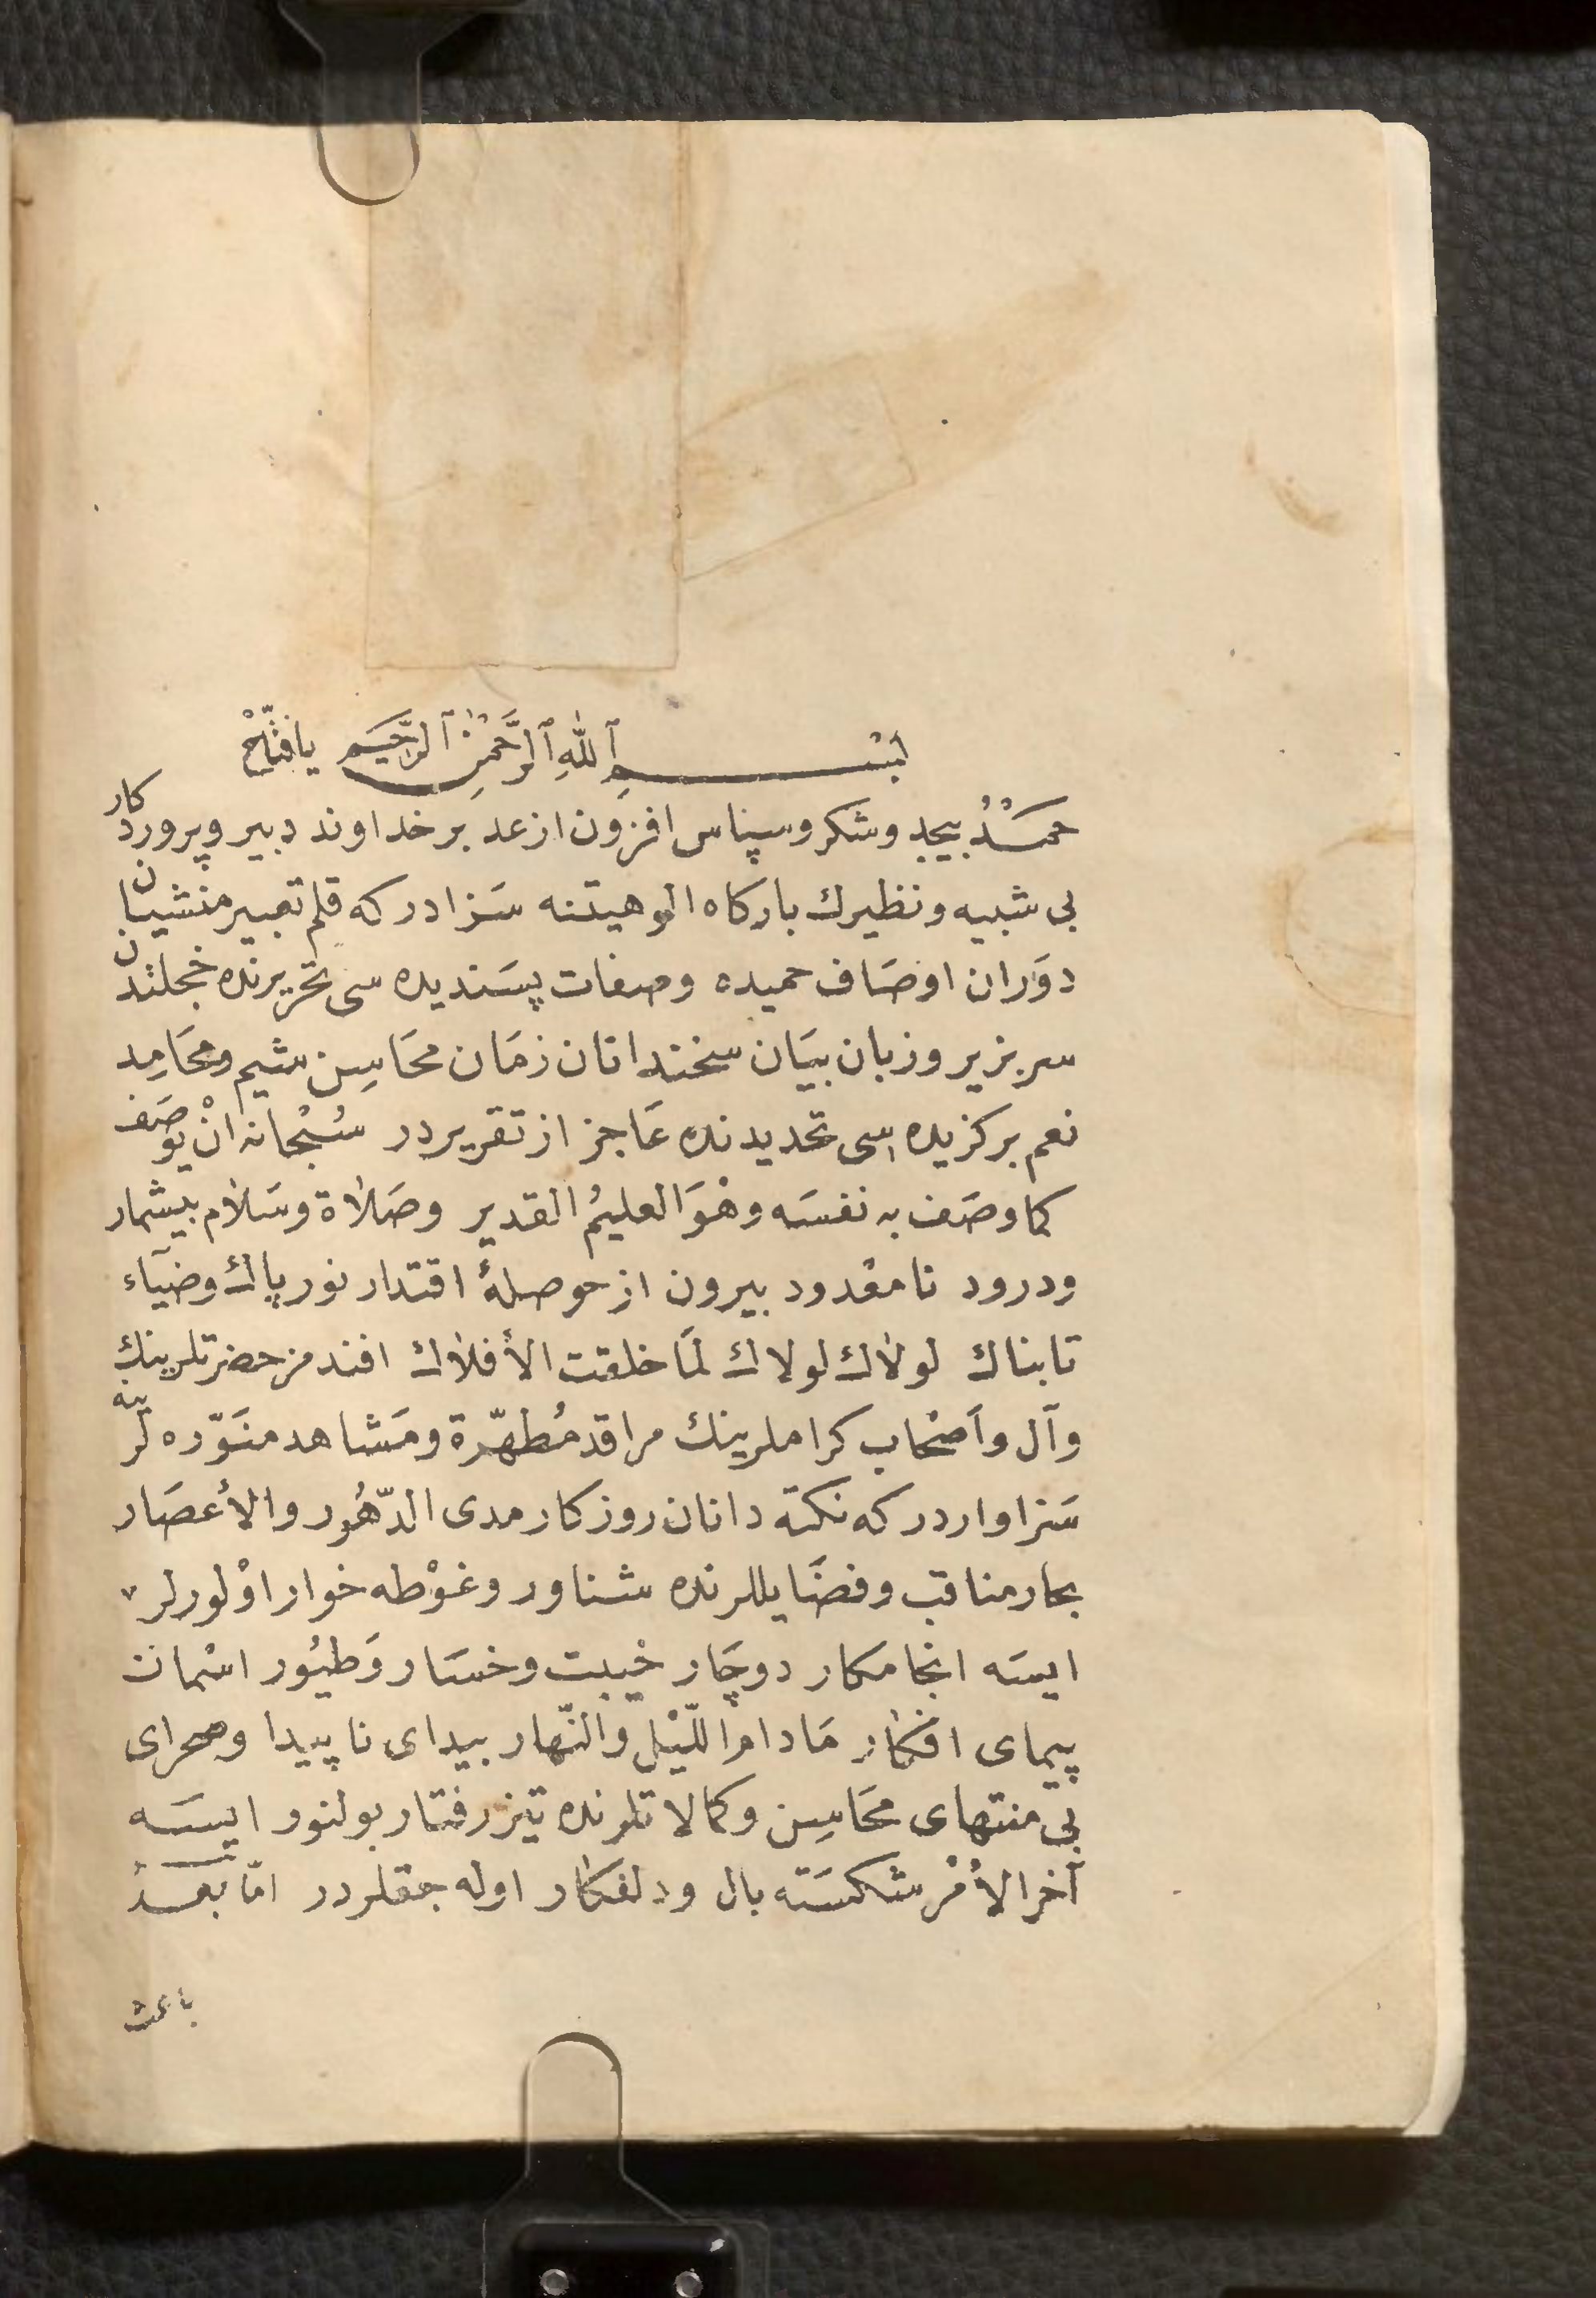 بِسْــمِ ٱللّٰهِ ٱلرَّحْمٰنِ ٱلرَّحِيَمِ يافتّاحْ
حمَــدُ بيحد وشكر وسپاس افزون از عد بر خداوند دبير وپروردكار
بى شبيه ونظيرك باركاه الوهيتنه سَزادر كه قلم تعبير منشيان
دوَران اوصَاف حميده وصفات پسَنديده سى تحريرنده خجلتدن
سر بزير وزبان بيَان سخندانان زمَان محَاسِن شيم ومحَامِد
نعم بركزيده سى تحديدنده عَاجز از تقريردر سُبْحانه انْ يوصَف
كما وصَف به نفسَه وهْوَ العليمُ القدير وصَلاٰة وسَلاٰم بيشمار
ودرود نامعْدود بيرون از حوصلهٔ اقتدار نور پاك وضيَاء
تابناك لولاٰك لولاك لمَا خلقت الأفلاٰك افندمز حضرتلرينك
وآل وأصْحاب كراملرينك مراقد مُطهّرة ومَشاهد منَوّره لرّينه
سَزاواردر كه نكته دانان روزكار مدى الدّهُور والأعصَار
بحار مناقب وفضَايللرنده شناور وغوْطه خوار اوْلورلر
ايسَه انجامكار دوچَار خيْبت وخسَار وَطيُور اسْمان
پيماى افكار مَادام اللّيْل والنّهار بيداى ناپيدا وصحراى
بى منتهاى محَاسِن وكمالاتلرنده تيز رفتار بولنور ايسَه
آخر الأمْر شكسَته بال ودلفكار اوله جقلردر امّا بعــد
باعث